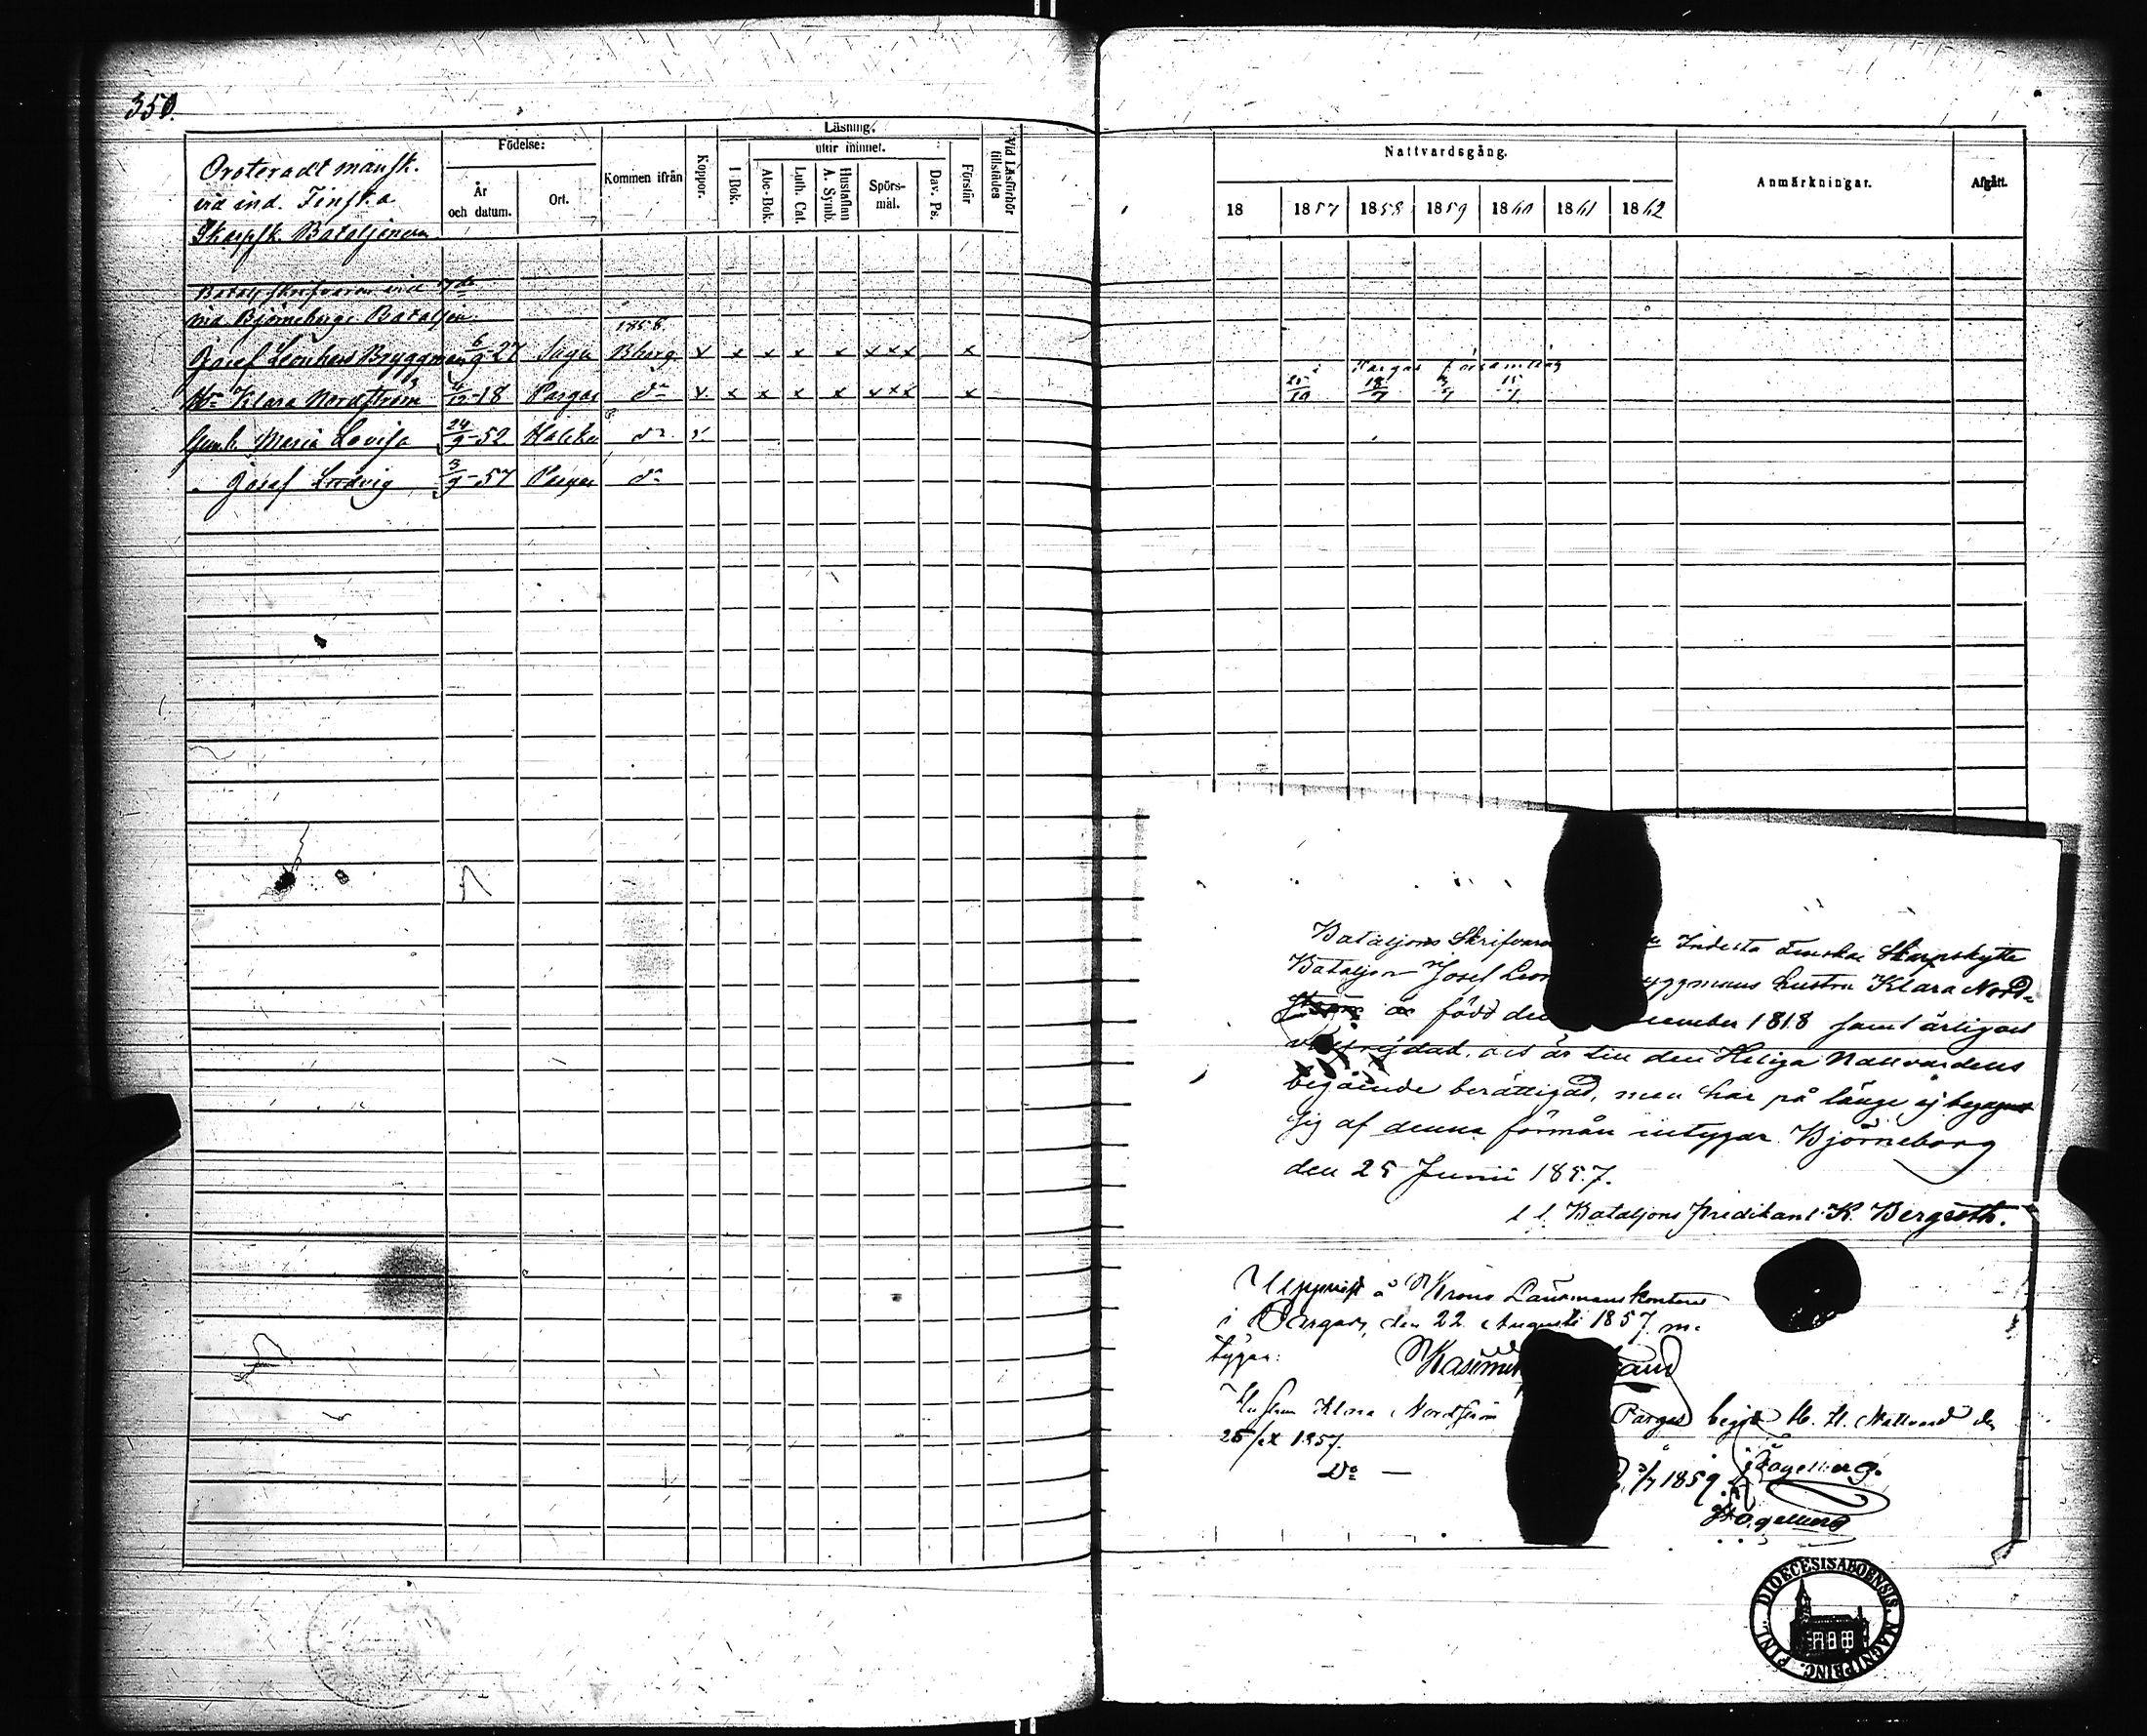 350.
Oroteradt mansk.
vid ind. Finska
Skarpsk. Bataljonen
Födelse:
År
och datum.
Ort.
Kommen ifrån
Koppor.
Läsning.
utur minnet.
I Bok.
Abc-Bok.
Luth. Cat.
Hustaflan
A. Symb.
Spörs-
mål.
Dav. Ps.
Förstår
Vid Läsförhör
tillstädes
Batalj. skrifvaren vid
vid Björneborgs Bataljon
1858
Josef Leonhard Bryggman 6/9 27 Sagu Bborg x x x x x x x x x
Hu Klara Nordström 4/12 18 Pargas do x x x x x x x x x
Maria Lovisa 24/9 52 do
Josef Ludvig 3/9 57 Pargas do
Nattvardsgång.
Anmärkningar.
Afgått.
18 1857 1858 1859 1860 1861 1862
i Pargas församling
25/10 18/7 3/7
Bataljons Skrifvare Indelta Finska Skarpskytte
Bataljon Josef Leon yggmans hustru Klara Nord-
ström är född den cember 1818 samt ärligen
och är till den Heliga Nattvardens
begående berättigad, men har på länge ej begagnat
sig af denna förmån intygar Björneborg
den 25 Junii 1857.
t. f. Bataljons Predikant K. Bergroth.
Uppvist å Krono Länsmanskontoret
i Pargas, den 22 Augusti 1857.
tygar:
Kasimir
Hustrun Klara Nordström Pargas begått H. H. Nattvard den
25/X 1857.
Do — 3/7 1859
DIOECESIS ABOENSIS. MAGNI PRINC. FINL.